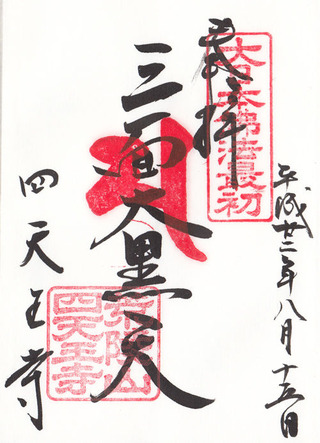 平成廿二年八月十五日
大日本佛法最初
奉拝
三面大黒天
荒陵山
四天王寺
四天王寺